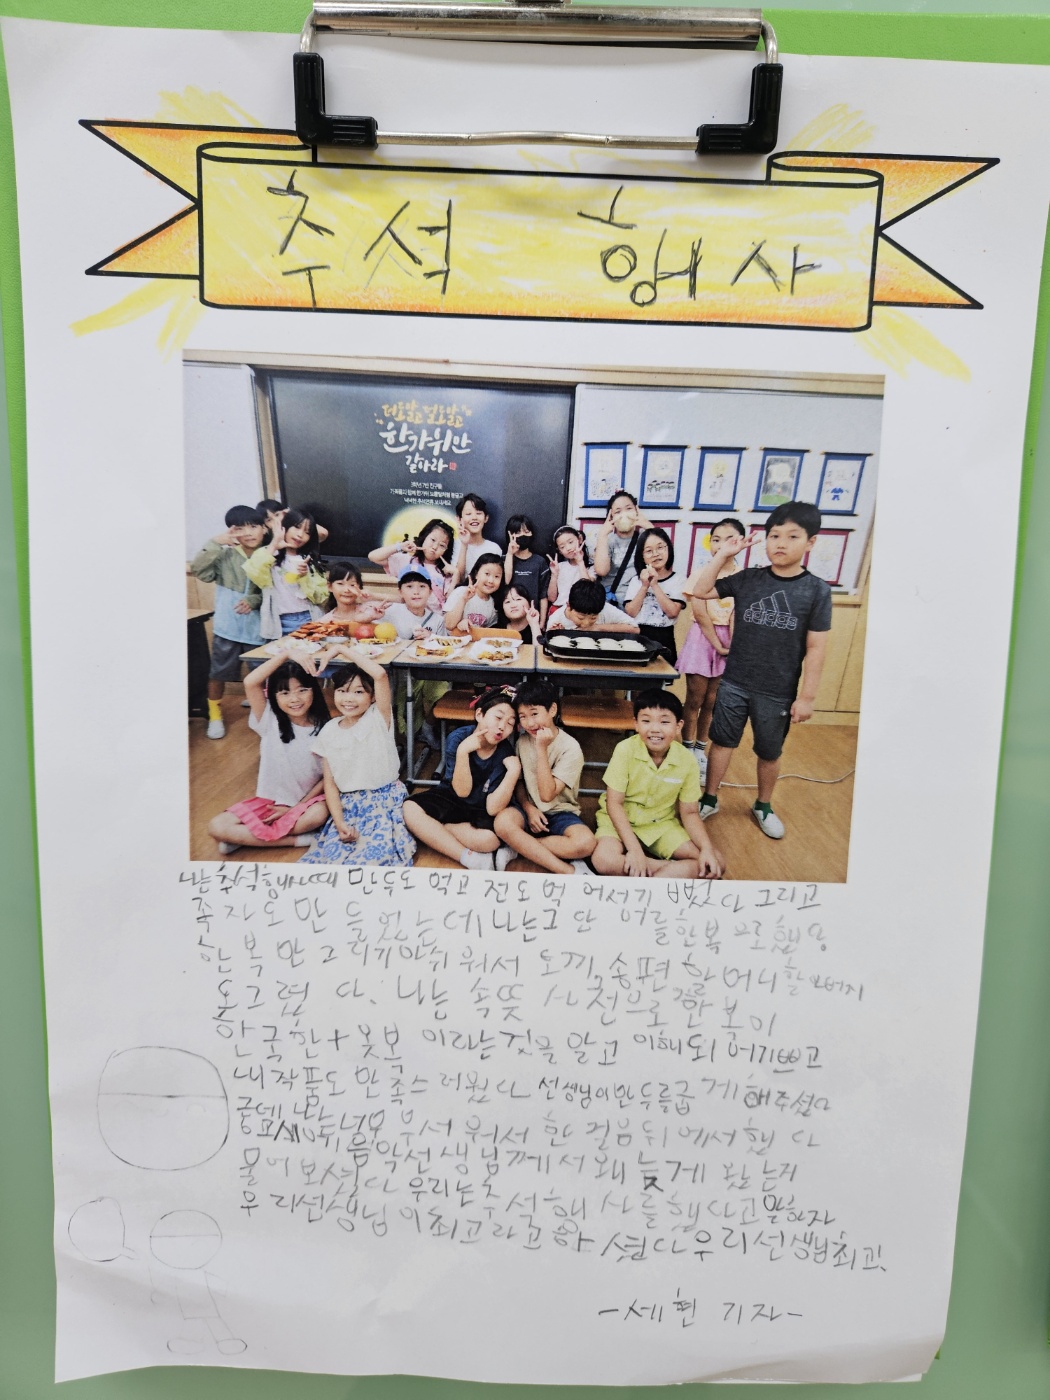 추석 행사
더도말고 덜도말고
한가위만
같아라
나는 추석행사때 만두도 먹고 전도 먹어서 기뻤다 그리고
족자도 만들었는데 나는 그 단어를 한복으로 했당
한복만 그리기 아쉬워서 토끼, 송편 할머니 할아버지
동그렸다. 나는 속뜻 사전으로 한복이
한국 한+옷 복 이라는 것을 알고 이해되어 기쁘고
내 작품도 만족스러웠다 선생님이 만두를 굽게 해주셨다
무서워서 한걸음 뒤에서 했다
음악선생님께서 왜 늦게 왔는지
물어보셨다 우리는 추석행사를 했다고 말하자
우리선생님이 최고라고 하셨다 우리선생님 최고!
-세현 기자-